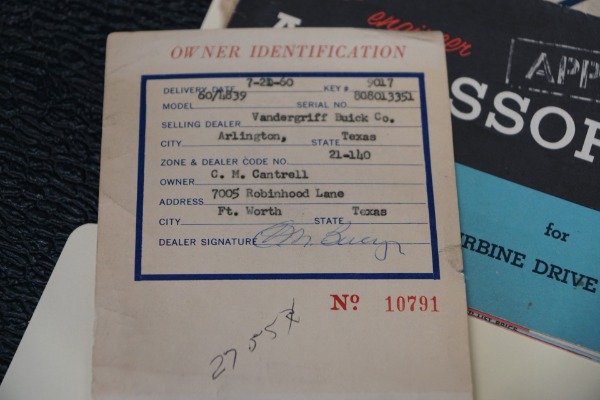 OWNER IDENTIFICATION
DELIVERY DATE 7-21-60 KEY # 9017
MODEL 60/4839 SERIAL NO. 808013351
SELLING DEALER Vandergriff Buick Co.
CITY Arlington, STATE Texas
ZONE & DEALER CODE NO. 21-140
OWNER C. M. Cantrell
ADDRESS 7005 Robinhood Lane
CITY Ft. Worth STATE Texas
DEALER SIGNATURE
No 10791
engineer
APP
SSOR
for
RBINE DRIVE